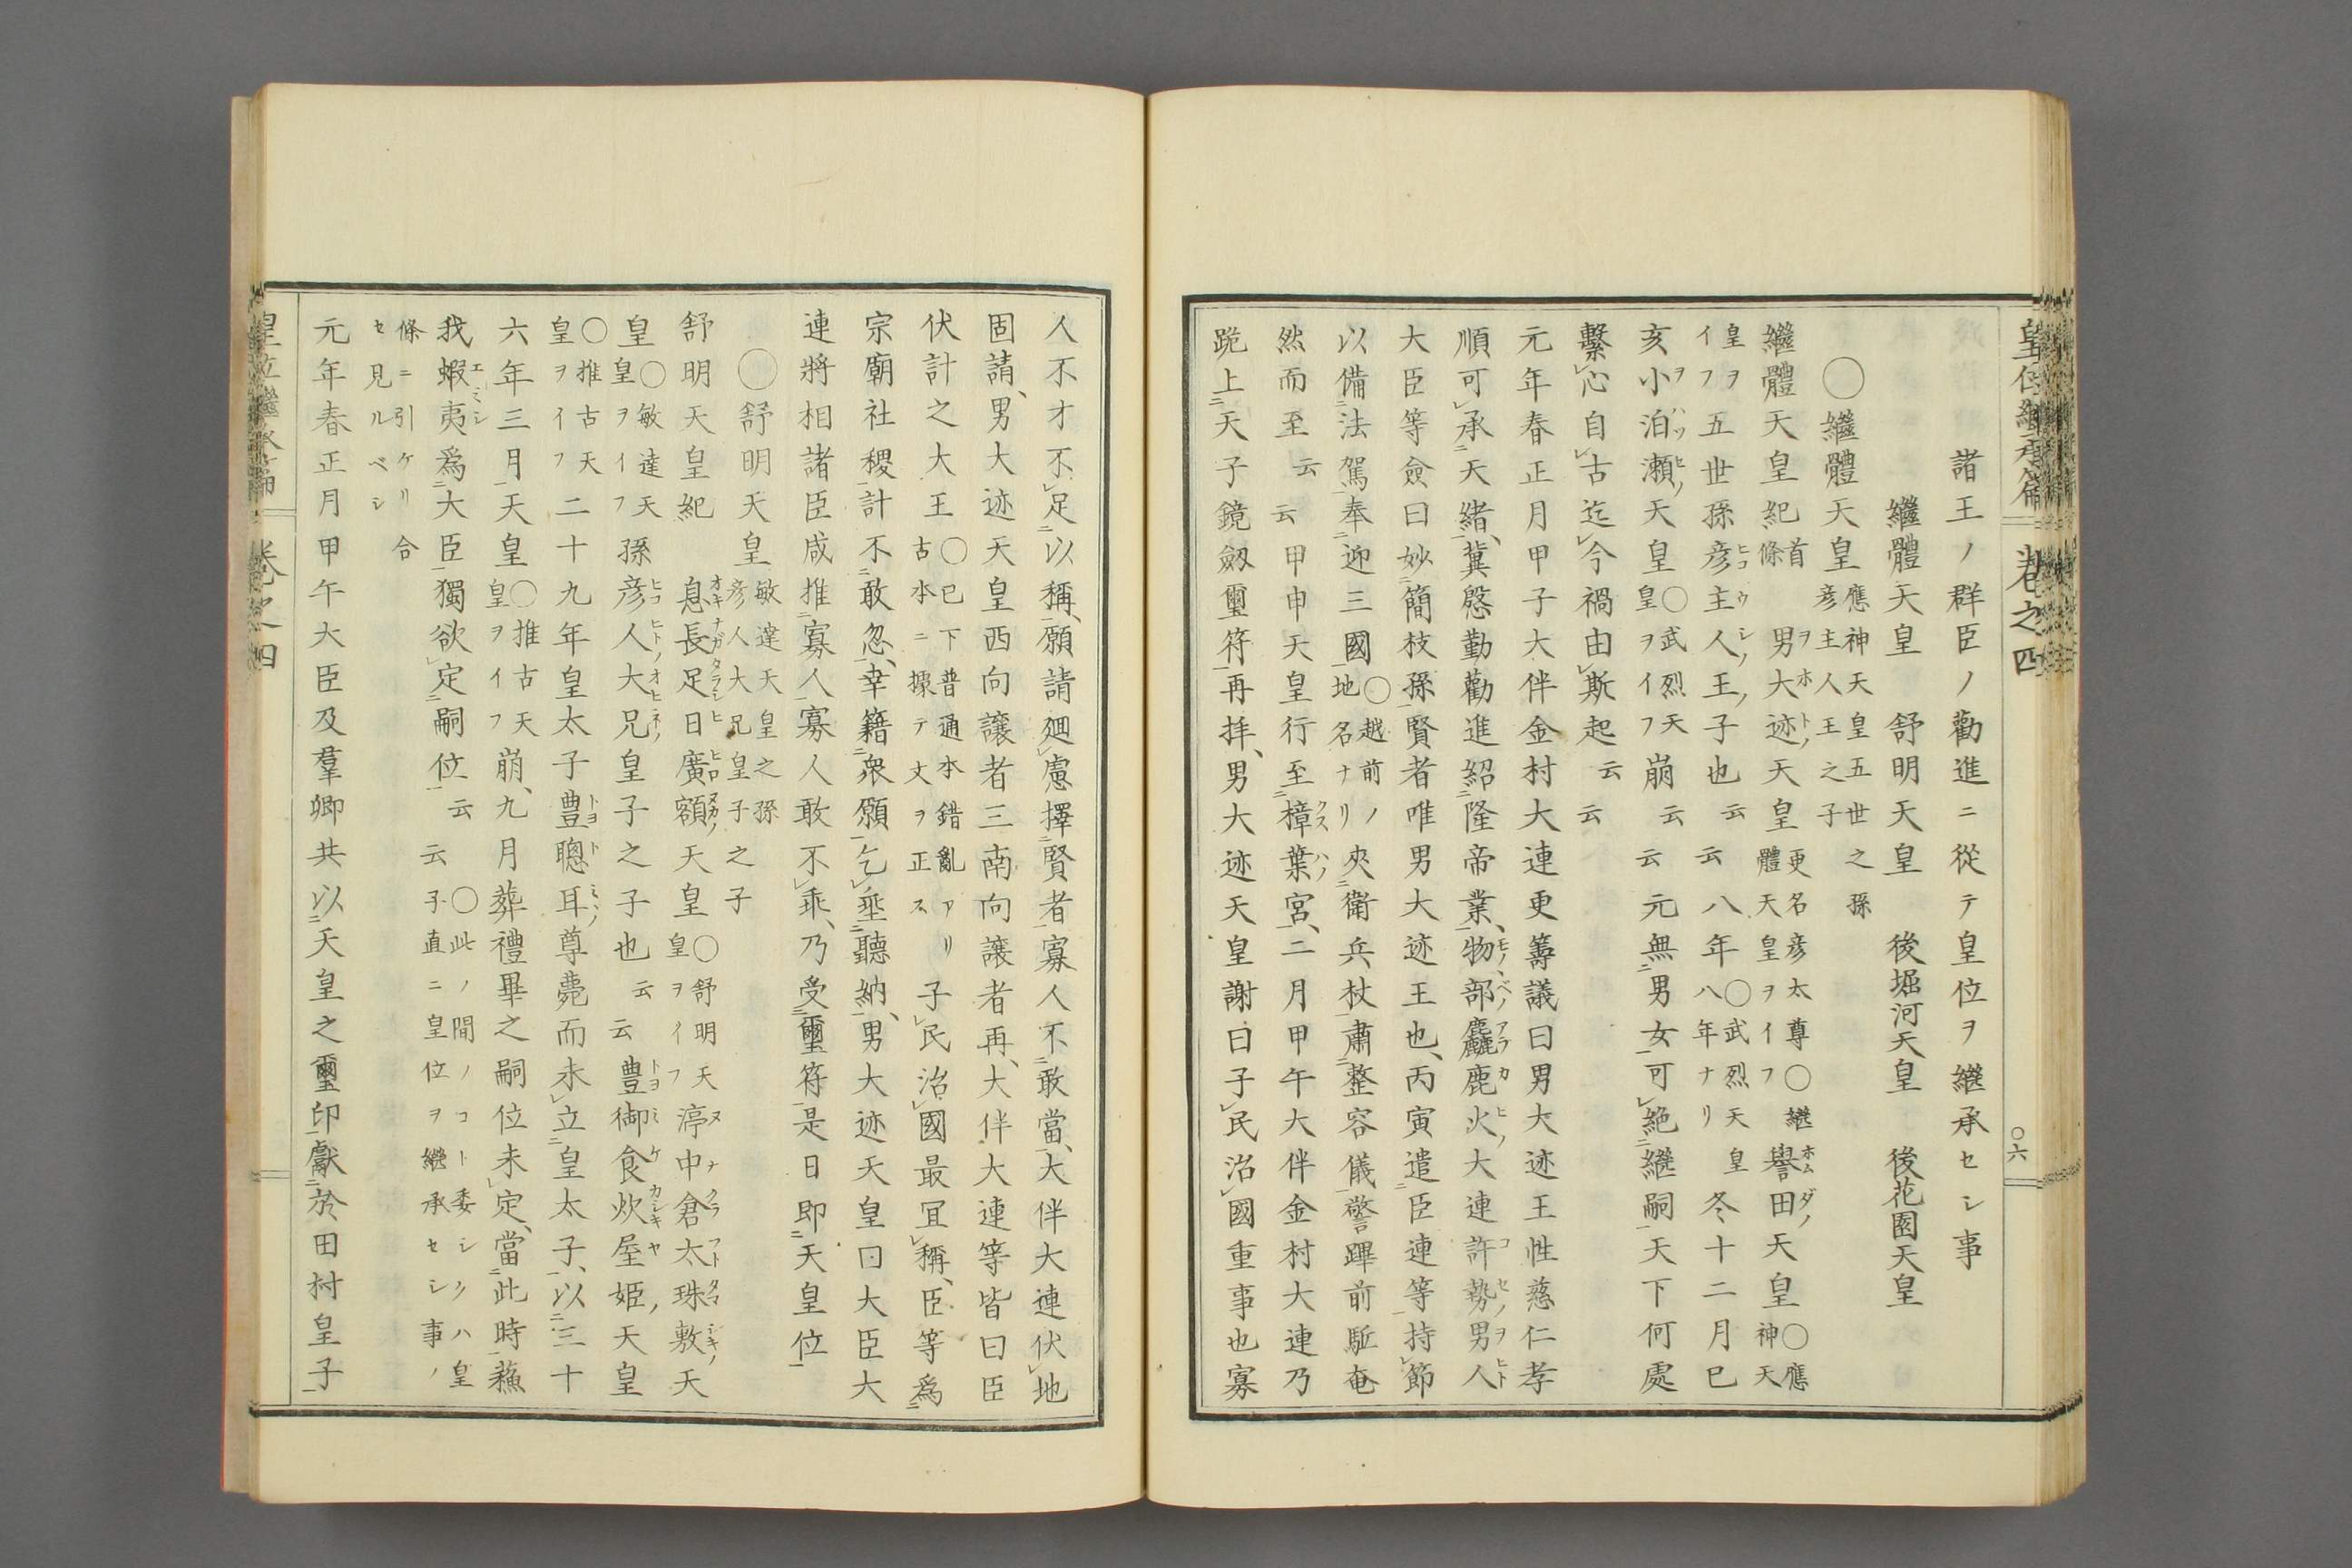 皇位繼承篇 卷之四 〇六
諸王ノ群臣ノ勸進ニ從テ皇位ヲ繼承セシ事
繼體天皇 舒明天皇 後堀河天皇 後花園天皇
〇繼體天皇 應神天皇五世之孫彥主人王之子
繼體天皇紀首條 男大迹天皇更名彥太尊〇繼體天皇ヲイフ譽田天皇〇應神天
皇ヲイフ五世孫彥主人王子也云云八年〇武烈天皇八年ナリ冬十二月己
亥小泊瀨天皇〇武烈天皇ヲイフ崩云云元無男女可絕繼嗣天下何處
繫心自古迄今禍由斯起云云
元年春正月甲子大伴金村大連更籌議曰男大迹王性慈仁孝
順可承天緒冀慇勤勸進紹隆帝業物部麤鹿火大連許勢男人
大臣等僉曰妙簡枝孫賢者唯男大迹王也丙寅遣臣連等持節
以備法駕奉迎三國〇越前ノ地名ナリ夾衛兵杖肅整容儀警蹕前駈奄
然而至云云甲申天皇行至樟葉宮二月甲午大伴金村大連乃
跪上天子鏡劔璽符再拝男大迹天皇謝曰子民治國重事也寡
人不才不足以稱願請廻慮擇賢者寡人不敢當大伴大連伏地
固請男大迹天皇西向讓者三南向讓者再大伴大連等皆曰臣
伏計之大王〇已下普通本錯亂アリ古本ニ據テ文ヲ正ス子民治國最冝稱臣等爲
宗廟社稷計不敢忽幸籍衆願乞垂聽納男大迹天皇曰大臣大
連將相諸臣咸推寡人寡人敢不乖乃受璽符是日即天皇位
〇舒明天皇 敏達天皇之孫彥人大兄皇子之子
舒明天皇紀 息長足日廣額天皇〇舒明天皇ヲイフ渟中倉太珠敷天
皇〇敏達天皇ヲイフ孫彥人大兄皇子之子也云云豊御食炊屋姬天皇
〇推古天皇ヲイフ二十九年皇太子豊聰耳尊薨而未立皇太子以三十
六年三月天皇〇推古天皇ヲイフ崩九月葬禮畢之嗣位未定當此時蘓
我蝦夷爲大臣獨欲定嗣位云云〇此ノ間ノコト委シクハ皇子直ニ皇位ヲ繼承セシ事ノ
條ニ引ケリ合セ見ルベシ
元年春正月甲午大臣及羣卿共以天皇之璽印獻於田村皇子
皇位繼承篇 卷之四